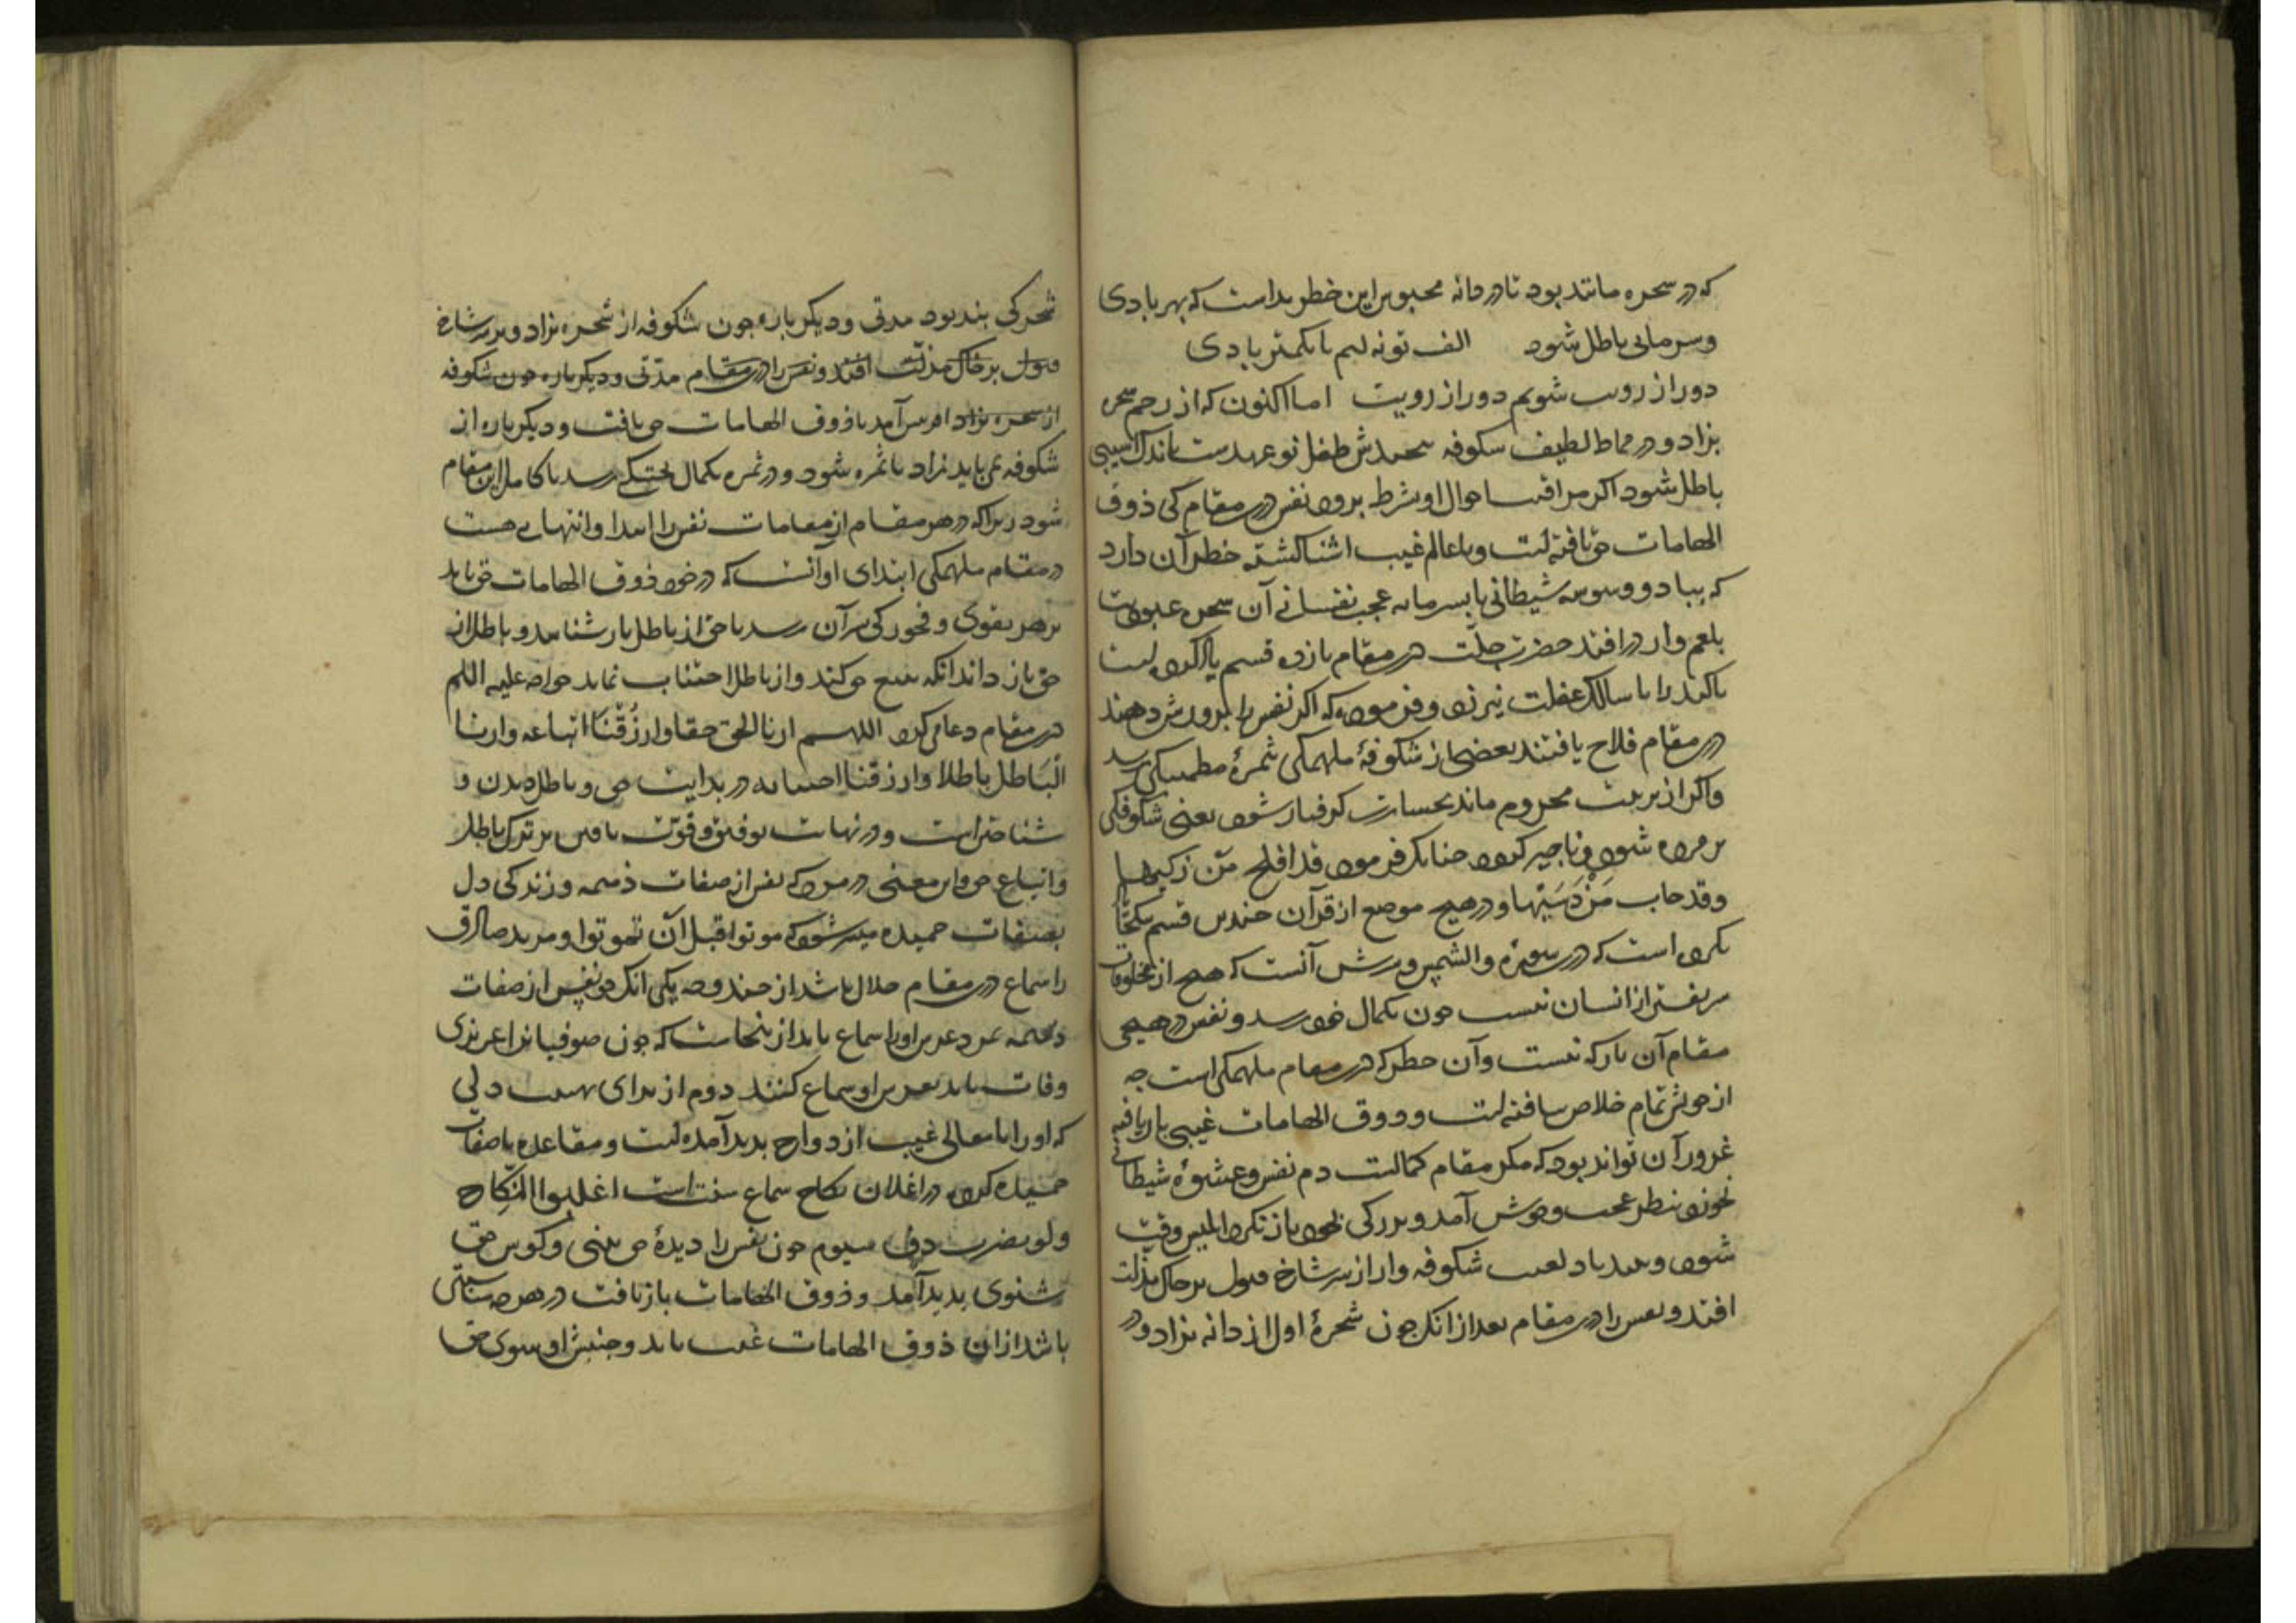 که در شجره مانند بود تا در دانه محبوس این خطر نداشت که بهر بادی
و سرمایی باطل شود الف تو نه لیم با کمتر بادی
دور از رویت شویم دور از رویت اما اکنون که از رحم شجره
بزاد و در قماط لطیف شکوفه طفل نو عهدست باندک آسیبی
باطل شود اکر مراقبت احوال او بشرط نرود نفس درین مقام کی ذوق
الهامات حق یافته است و با عالم غیب اشنا کشته خطر آن دارد
که بباد وسوسه شیطانی یا بسرمای عجب نفسانی آن شجره عبودیت
بلعم وار درافتد حضرت جلت درین مقام یازده قسم یاد کرده است
با کید را با سالک غفلت نورزد و فرموده که اکر نفس را پرورش دهند
در مقام فلاح یافتند بعضی از شکوفهٔ ملهمکی ثمرهٔ مطمینکی رسد
و اکر از تربیت محروم ماند بخسارت کرفتار شود یعنی شکوفکی
پژمرده شود و ناچیز کردد چنانک فرمود قد افلح من زکیها
و قد خاب من دسیها و در هیچ موضع از قرآن چندین قسم یکجا
نکرده است که در سوره والشمس و سرش آنست که هیچ از مخلوقات
شریفتر از انسان نیست چون بکمال خود رسد و نفس در هیچ
مقام آن باریکه نیست و آن خطر که درین مقام ملهمکی است چه
از خویش تمام خلاص نیافته است و ذوق الهامات غیبی باز یافته
غرور آن تواند بود که مکر مقام کمالست دم نفس و عشوهٔ شیطانی
بخورد بنظر عجب و خوش آمد و بزرکی بخود باز نکرد ابلیس وقت
شود و بتندباد لعنت شکوفه وار از سر شاخ قبول بر خاک مذلت
افتد و نفس را درین مقام بعد از انک چون شجرهٔ اول از دانه بزاد و در
شجرکی بند بود مدتی و دیکر باره چون شکوفه از شجره بزاد و بر سر شاخ
قبول بر خاک مذلت افتد و نفس را درین مقام مدتی و دیکر باره چون شکوفه
از شجره بزاد افرینش آمد با ذوق الهامات حق یافت و دیکر باره از
شکوفه می باید بزاد تا ثمره شود و در ثمره بکمال پختکی رسد تا کامل این مقام
شود زیرا که در هر مقام از مقامات نفس را ابتدا و انتهایی هست
در مقام ملهمکی ابتدای او آنست که در خود ذوق الهامات حق یابد
بر هر تقوی و فجور کی بر آن رسد تا حق از باطل باز شناسد و باطل از
حق باز داند انکه تتبع حق کند و از باطل اجتناب نماید خواجه علیه السلم
درین مقام دعا می کرد اللهم ارنا الحق حقا و ارزقنا اتباعه و ارنا
الباطل باطلا و ارزقنا اجتنابه در بدایت حق و باطل دیدن و
شناختن است و در نهایت توفیق و قوت یافتن بر ترک باطل
و اتباع حق و این معنی در مردن که نفس از صفات ذمیمه و زندکی دل
بصفات حمیده میسر شود که موتوا قبل آن تموتوا و مرید صادق
را سماع درین مقام حلال باشد از چند وجه یکی انک چون نفس از صفات
ذمیمه بمرد عرس او را سماع باید از ینجاست که چون صوفیانرا عزیزی
وفات یابد بعد بر او سماع کنند دوم از برای تهنیت دلی
که او را با معالی غیب ازدواج بدید آمده است و مقاعده با صفات
حمیده کرده در اعلان نکاح سماع سنت است اعلنوا النکاح
ولو بضرب دف سیوم چون نفس را دیدهٔ حق بینی و کوس حق
شنوی بدید آمد و ذوق الهامات باز یافت در هر چه سببی
باشد از ان ذوق الهامات غیب یابد و جنبش او سوی حق